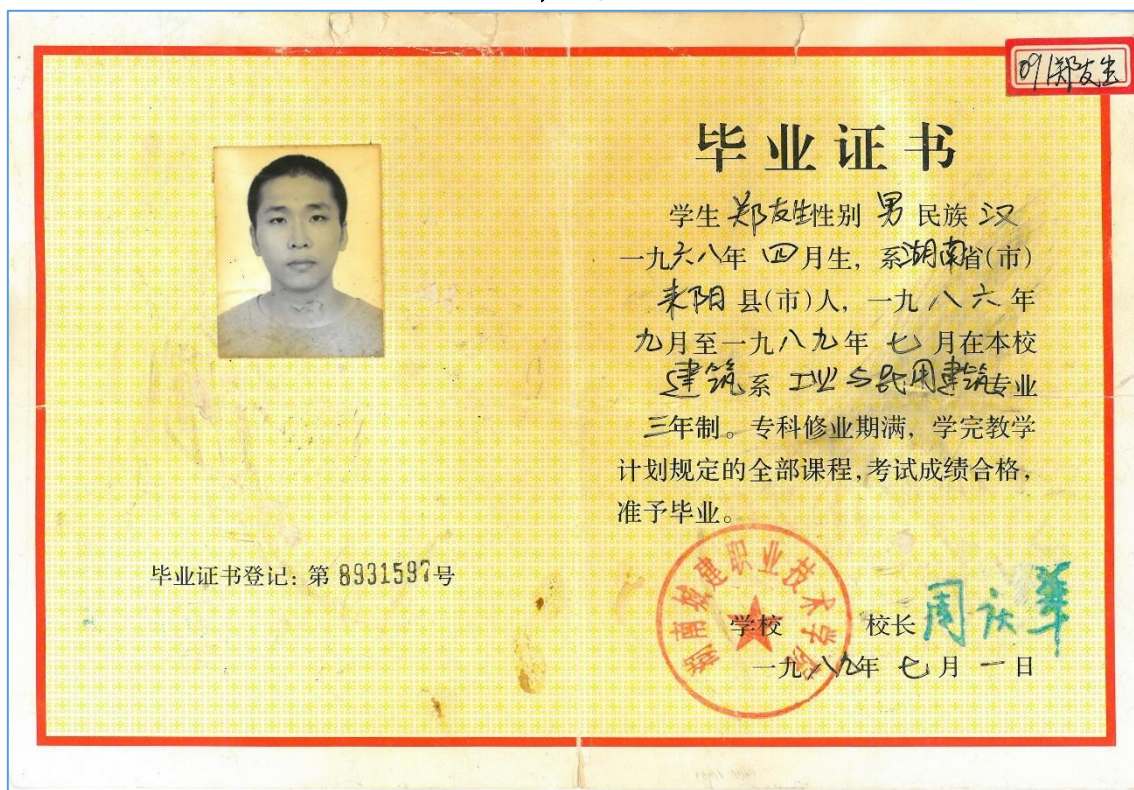 091郑友生
毕业证书
学生 郑友生性别 男 民族 汉
一九六八年 四月生，系湖南省(市)
耒阳县(市)人，一九八六年
九月至一九八九年七月在本校
建筑系 工业与民用建筑专业
三年制。专科修业期满，学完教学
计划规定的全部课程，考试成绩合格，
准予毕业。
毕业证书登记：第 8931597号
湖南城建职业技术学院
学校 校长 周庆华
一九八九年 七月 一日